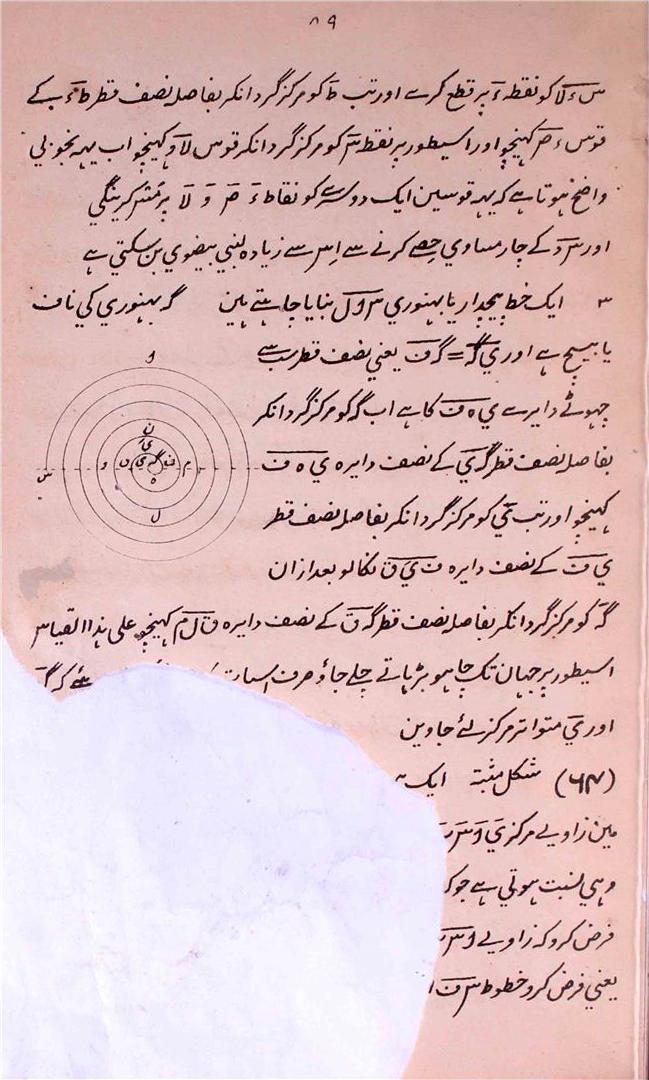 ۸۹
س ءَ لاَ کو نقطہ ءَ پر قطع کرے اور تب طَ کو مرکز گردانکر بفاصلہ نصف قطر طَ ءَ کے
قوس ءَ صَ کہینچو اور اسیطور پر نقطہ سَ کو مرکز گردانکر قوس لاَ وَ کہینچو اب یہہ بخوبی
واضح ہوتا ہے کہ یہہ قوسین ایک دوسرے کو نقاط ءَ صَ وَ لاَ پر مَس کرینگی
اور سَ دَ کے چار مساوی حصے کرنے سے اِس سے زیادہ لنبی بیضوی بن سکتی ہے
۳ ایک خط پیچدار یا بہنوری س و ل بنایا چاہتے ہین گہ بہنوری کی ناف
یا بیچ ہے اور ی گہ = گہ ف یعنی نصف قطر سب سے
چہوٹے دایرے ی ہ ف کا ہے اب گہ کو مرکز گردانکر
بفاصلہ نصف قطر گہ ی کے نصف دایرہ ی ہ ف
کہینچو اور تب ی کو مرکز گردانکر بفاصلہ نصف قطر
ی ف کے نصف دایرہ ف ی ق نکالو بعد ازان
گہ کو مرکز گردانکر بفاصلہ نصف قطر گہ ق کے نصف دایرہ ق ل م کہینچو علی ہذا القیاس
اسیطور پر جہان تک چاہو بڑہاتے چلے جاؤ صرف اسبات
اور ی متواتر مرکز لئے جاوین
(۶۴) شکل مثبتہ ایک
مین زاویے مرکزی
وہی نسبت ہوتی ہے جو کہ
فرض کرو کہ زاویے
یعنی فرض کرو خطوط س ف
و
ن
ی
س و ق ی گہ ف م
ہ
ل